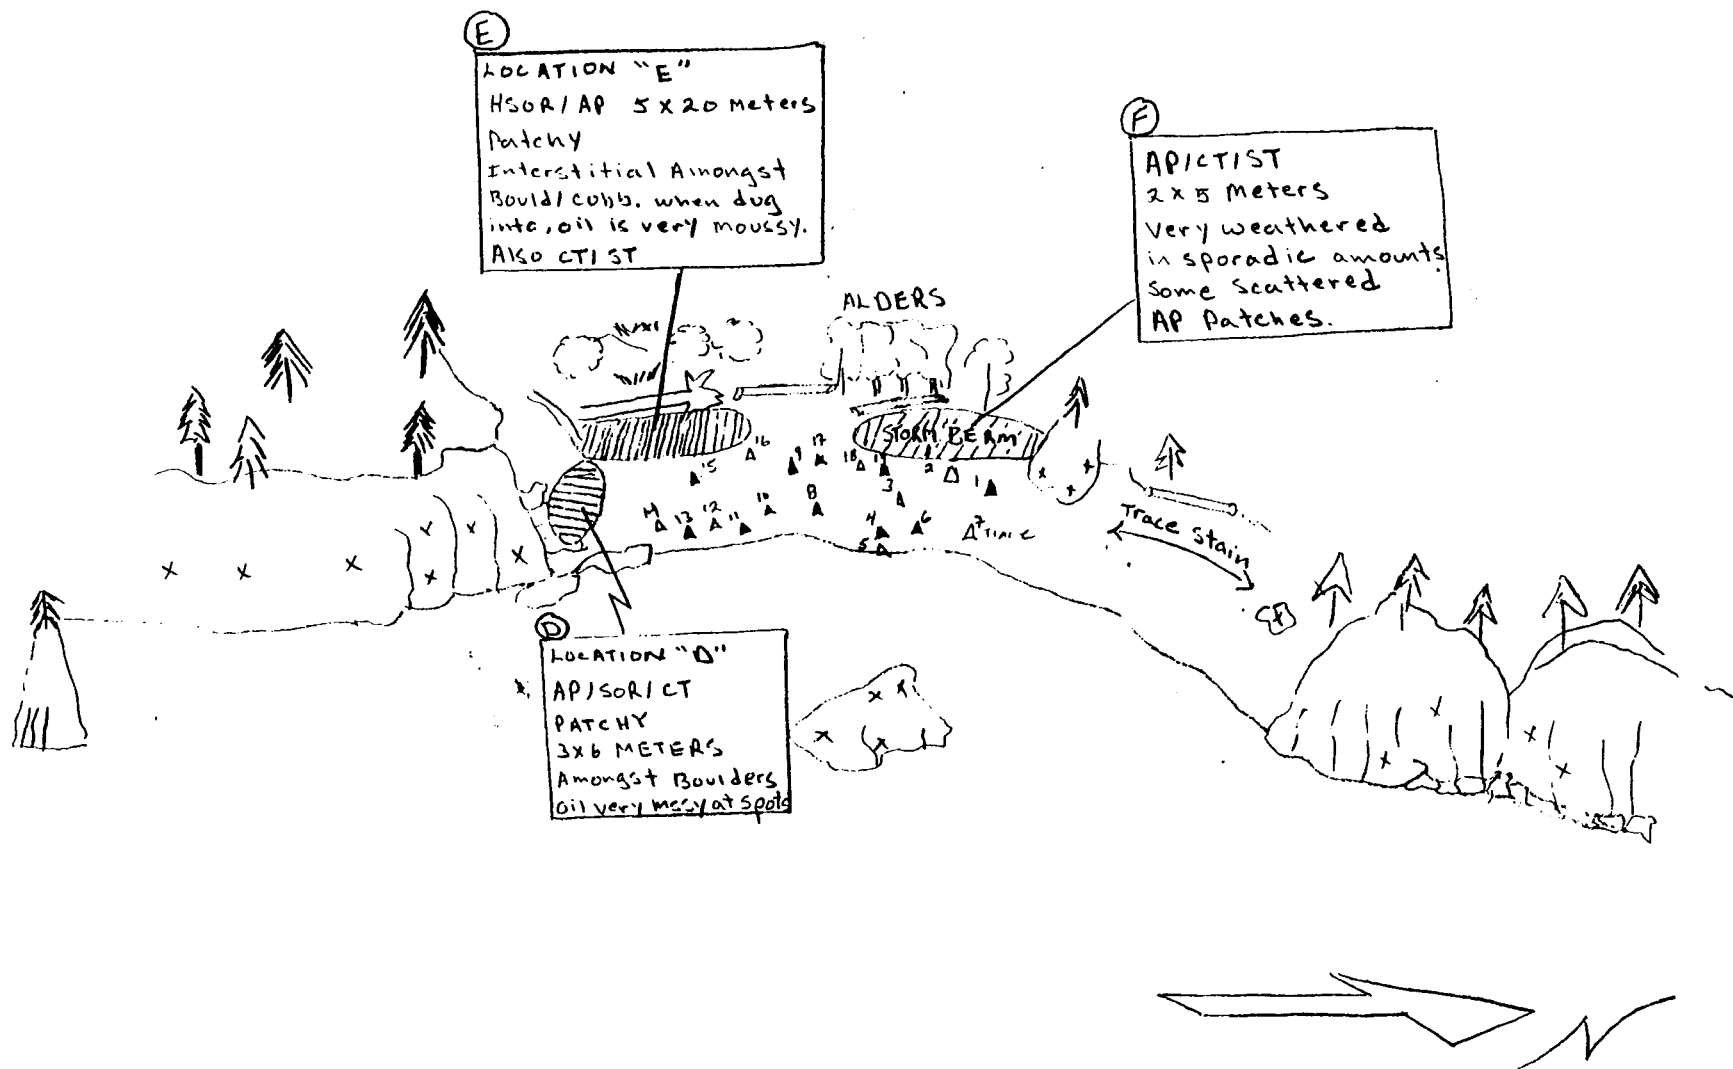 E
LOCATION "E"
HSOR/AP 5 X 20 Meters
Patchy
Interstitial Amongst
Bould/Cobb. when dug
into, oil is very moussy.
Also CT/ST
F
AP/CT/ST
2 x 5 Meters
Very weathered
in sporadic amounts
Some Scattered
AP Patches.
ALDERS
STORM BERM
16
17
15
9
18
19
2
1
3
14
13
12
11
10
8
4
5
6
7
Trace Stain
D
LOCATION "D"
AP/SOR/CT
PATCHY
3X6 METERS
Amongst Boulders
oil very at spots
N